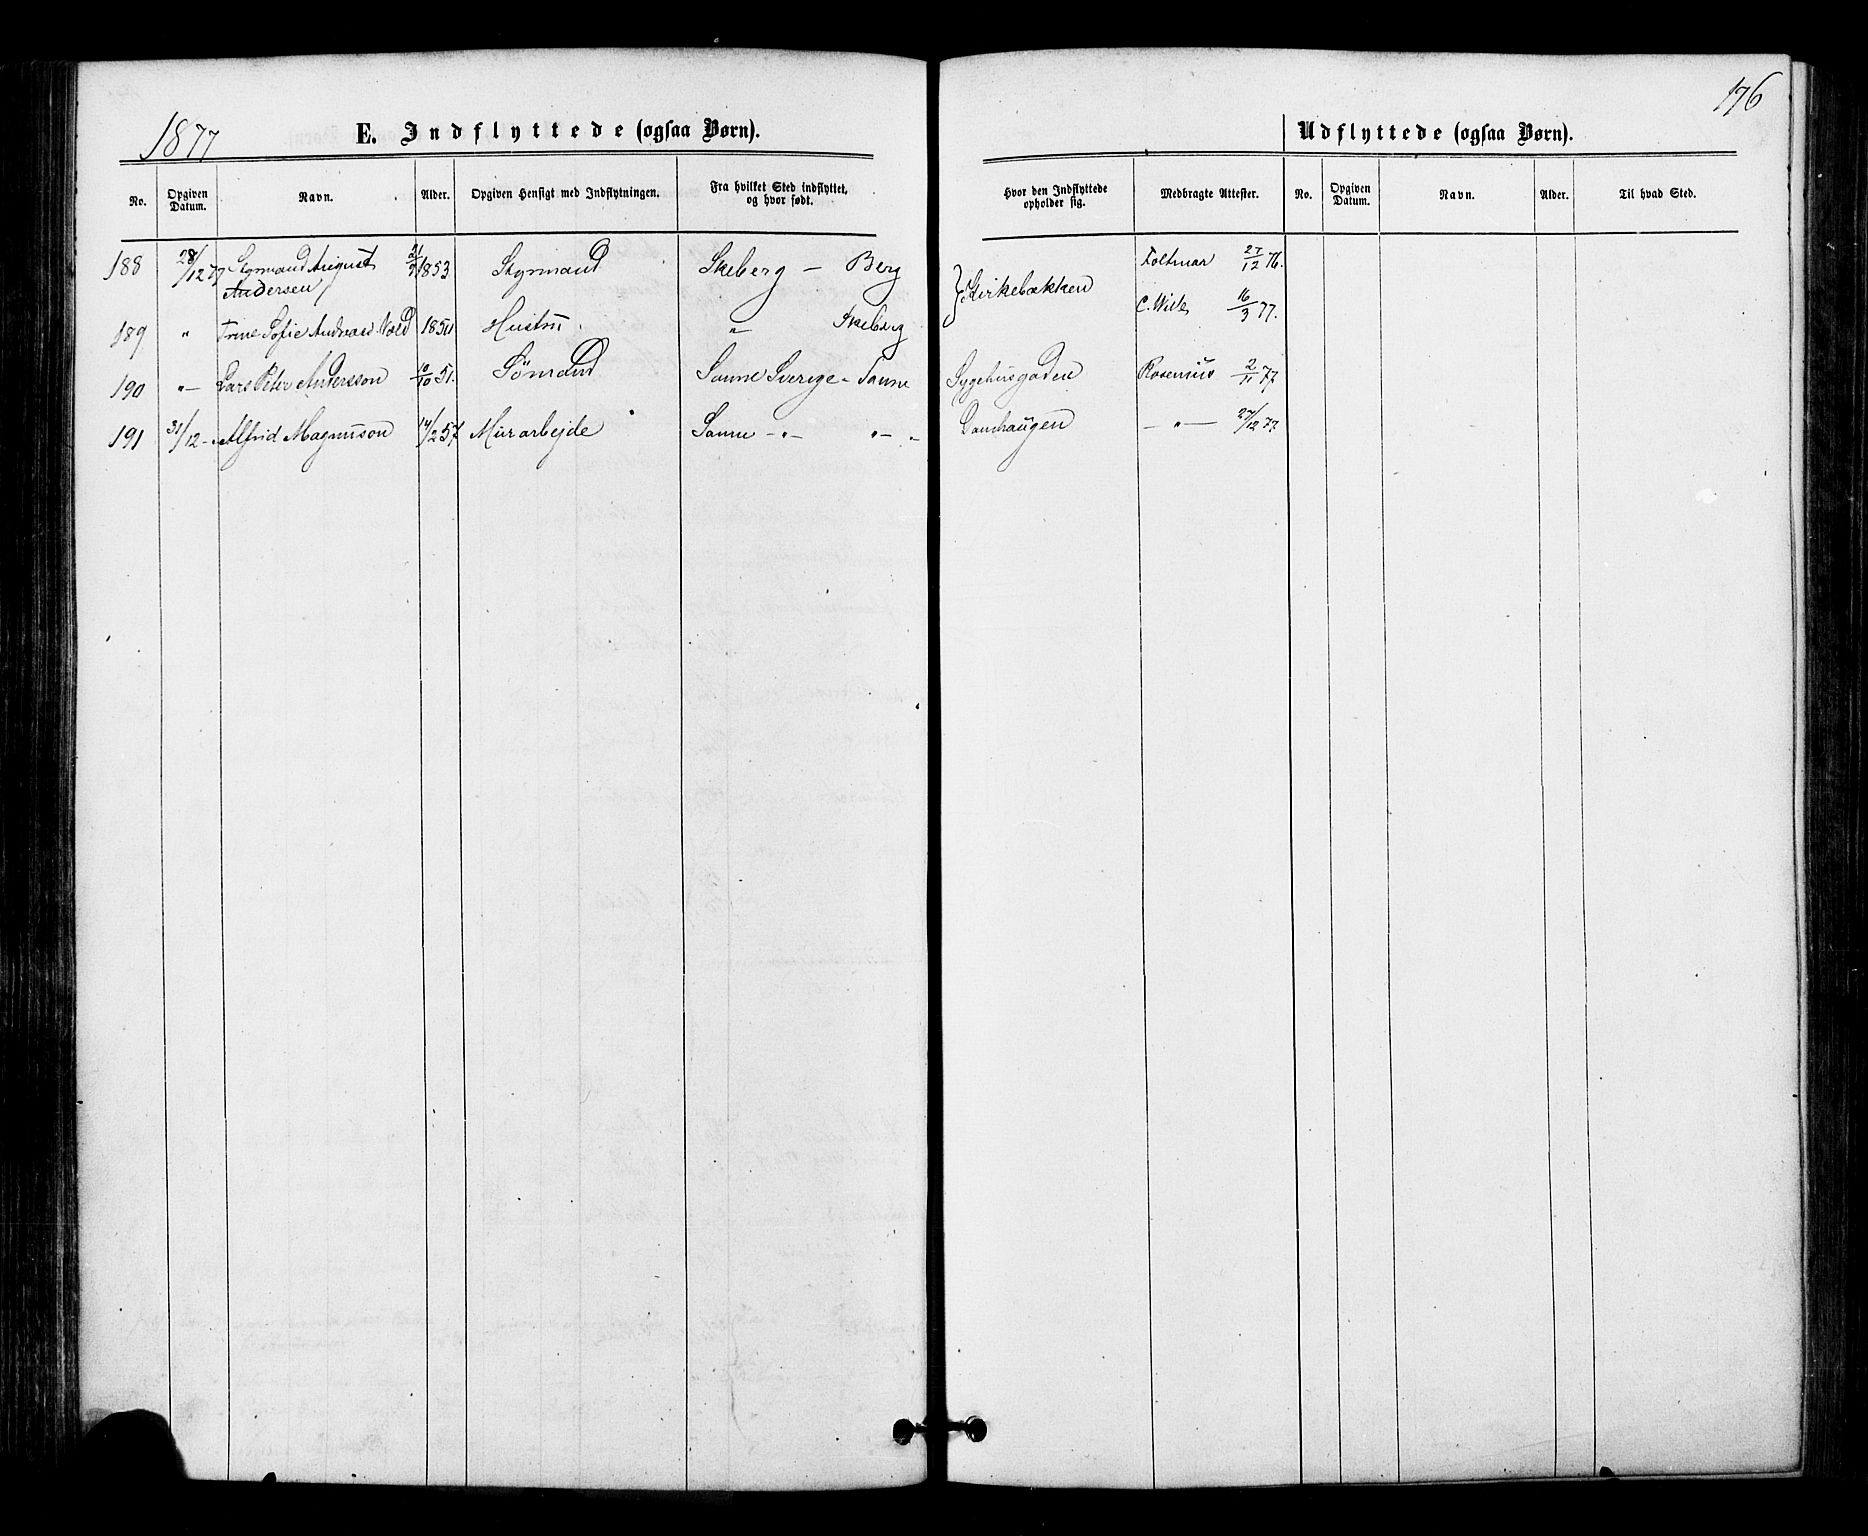 176
1877
E. Indflyttede (ogsaa Børn).
Udflyttede (ogsaa Børn).
No.
Opgiven Datum.
Navn.
Alder.
Opgiven Hensigt med Indflytningen.
Fra hvilket Sted indflyttet, og hvor født.
Hvor den Indflyttede opholder sig.
Medbragte Attester.
No.
Opgiven Datum.
Navn.
Alder.
Til hvad Sted.
188 28/12 77 Styrmand August 1853 Styrmand Skeberg — Berg Foltmar 27/12 76.
Andersen } Kirkebækken
189 " Trine Sofie Andrea Hustru " Skeberg C. Wille 16/3 77.
190 "— Lars Peter Andersson 10/10 51. Sömand Sanne Sverige - Sanne Sygehusgaden Rosenius 2/11 77
191 31/12 - Alfrid Magnuson 14/2 57 Murarbejde Sanne -"- "- " Damhaugen — " — 27/12 77